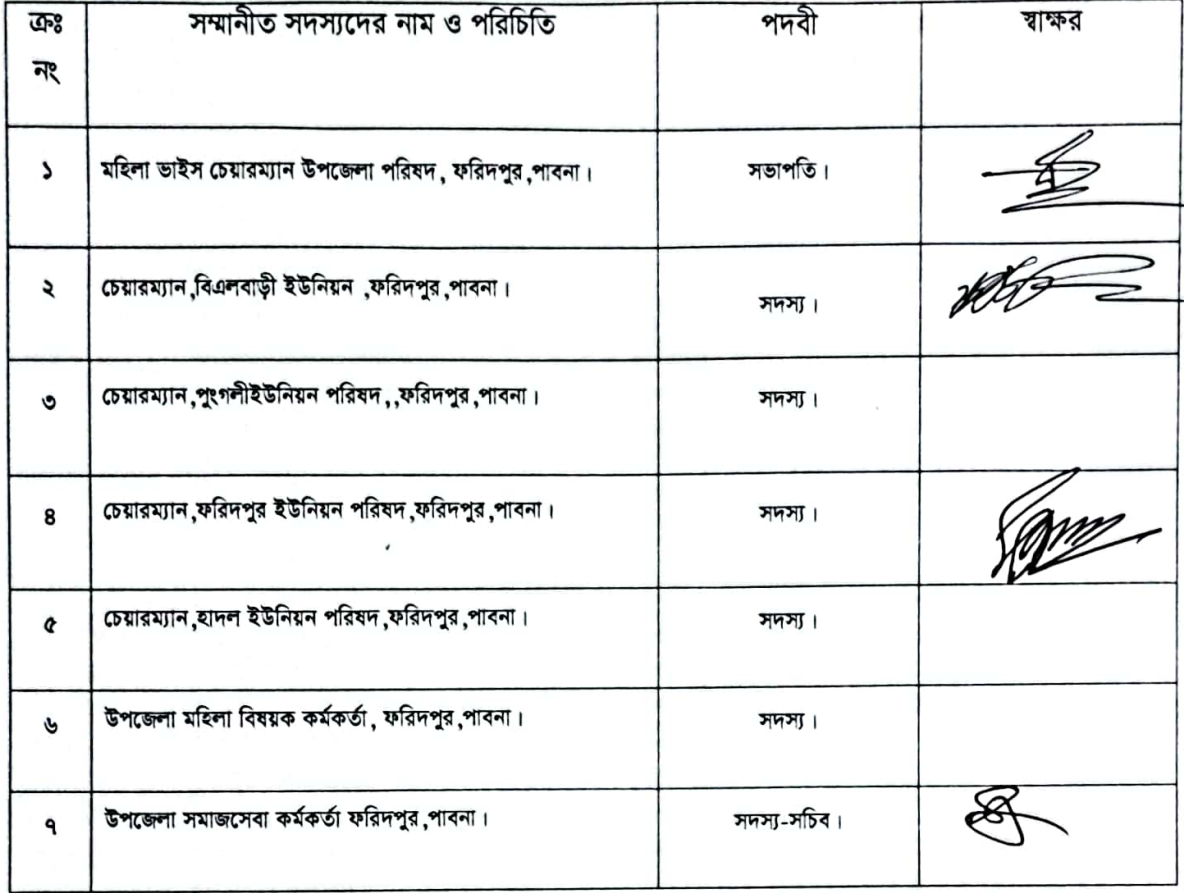 ক্রঃ নং সম্মানীত সদস্যদের নাম ও পরিচিতি পদবী স্বাক্ষর
১ মহিলা ভাইস চেয়ারম্যান উপজেলা পরিষদ, ফরিদপুর,পাবনা। সভাপতি।
২ চেয়ারম্যান,বিএলবাড়ী ইউনিয়ন ,ফরিদপুর,পাবনা। সদস্য।
৩ চেয়ারম্যান,পুংগলীইউনিয়ন পরিষদ,,ফরিদপুর,পাবনা। সদস্য।
৪ চেয়ারম্যান,ফরিদপুর ইউনিয়ন পরিষদ,ফরিদপুর,পাবনা। সদস্য।
৫ চেয়ারম্যান,হাদল ইউনিয়ন পরিষদ,ফরিদপুর,পাবনা। সদস্য।
৬ উপজেলা মহিলা বিষয়ক কর্মকর্তা, ফরিদপুর,পাবনা। সদস্য।
৭ উপজেলা সমাজসেবা কর্মকর্তা ফরিদপুর,পাবনা। সদস্য-সচিব।